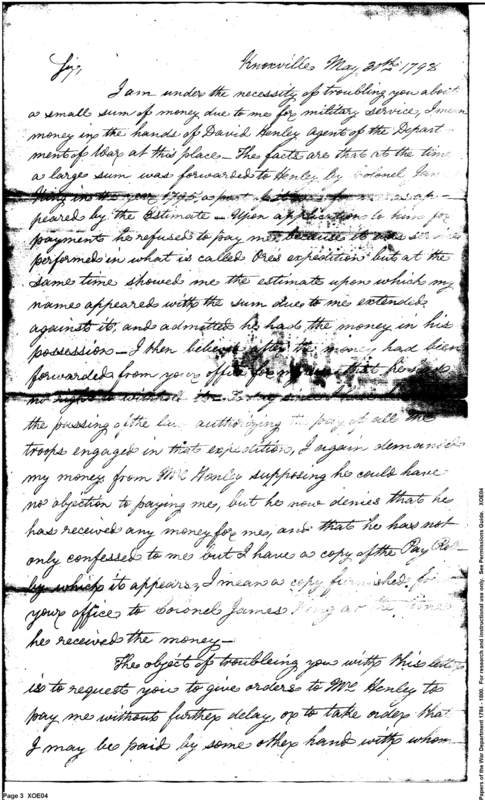 Sir, Knoxville May 30th 1798
I am under the necessity of troubling you about
a small sum of money due to me for military service, I mean
money in the hands of David Henley Agent of the Depart-
ment of War at this place – The facts are that at the time
a large sum was forwarded to Henley by Colonel James
King in the year 1795, a part of it was for me as ap-
peared by the Estimate – Upon application to him for
payment he refused to pay me because it was services
performed in what is called Ores expedition but at the
same time showed me the estimate upon which my
name appeared with the sum due to me extended
against it, and admitted he had the money in his
possession – I then believed after the money had been
forwarded from your office for my use that he had
no right to withhold the
the passing of the law authorizing the pay of all the
troops engaged in that expedition, I again demanded
my money from Mr. Henley supposing he could have
no objection to paying me, but he now denies that he
has received any money for me, and that he has not
only confessed to me but I have a copy of the Pay Roll
by which it appears, I mean a copy furnished from
your office to Colonel James King at the time
he received the money –
The object of troubleing you with this letter
is to request you to give orders to Mr. Henley to
pay me without further delay or to take order that
I may be paid by some other hand with whom
Page 3 XOE04
Papers of the War Department 1784 - 1800. For research and instructional use only. See Permissions Guide. XOE04